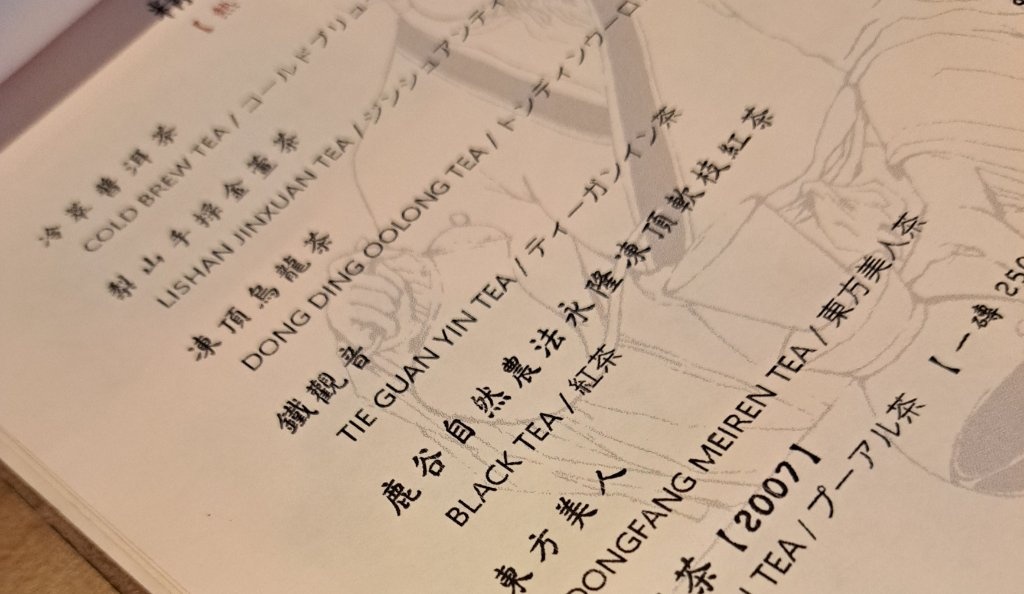 【熱
冷萃普洱茶
COLD BREW TEA / コールドブリュー
梨山手採金萱茶
LISHAN JINXUAN TEA / ジンシュアンティ
凍頂烏龍茶
DONG DING OOLONG TEA / トンディンウーロ
鐵觀音
TIE GUAN YIN TEA / ティーガンイン茶
鹿谷自然農法永隆凍頂軟枝紅茶
BLACK TEA / 紅茶
東方美人
DONGFANG MEIREN TEA / 東方美人茶
茶【2007】
TEA / プーアル茶 【一磚 250